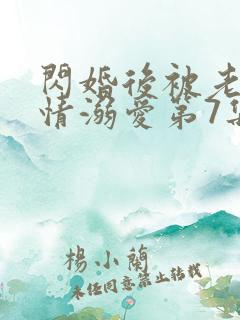 閃婚後被老
情溺愛第7集
楊小蘭
未經同意禁止轉載